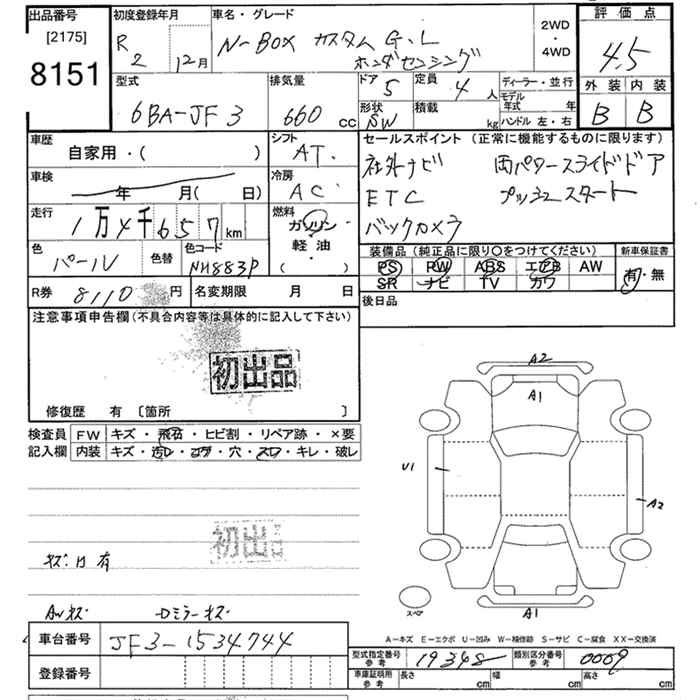 出品番号
[2175]
8151
初度登録年月
R2 12月
車名・グレード
N-BOX カスタム G・L
ホンダセンシング
2WD
・
4WD
評価点
4.5
外装 内装
B B
型式
6BA-JF3
排気量
660 cc
ドア 5
定員 4 人
形状 SW
積載 kg
ディーラー・並行
モデル年式 年
ハンドル 左・右
車歴
自家用・( )
シフト
AT
セールスポイント(正常に機能するものに限ります)
社外ナビ 両パワースライドドア
ETC プッシュスタート
バックカメラ
車検
年 月( 日)
冷房
AC
走行
1万4千657km
燃料
ガソリン・
軽油・
( )
色
パール
色替
色コード
NH883P
装備品(純正品に限り○をつけてください)
PS PW ABS エアB AW
SR ナビ TV カワ
新車保証書
有・無
R券 8110 円
名変期限 月 日
後日品
注意事項申告欄(不具合内容等は具体的に記入して下さい)
初出品
修復歴 有 [箇所 ]
検査員
記入欄
FW キズ・飛石・ヒビ割・リペア跡・×要
内装 キズ・汚レ・コゲ・穴・スレ・キレ・破レ
初出品
キズ・凹有
AWキズ Dミラーキズ
A2
A1
U1
A2
A1
スペア
A-キズ E-エクボ U-凹み W-補修跡 S-サビ C-腐食 XX-交換済
車台番号 JF3-1534744
登録番号
型式指定番号
参考
19348
類別区分番号
参考
0009
車庫証明用
参考
長さ cm 幅 cm 高さ cm